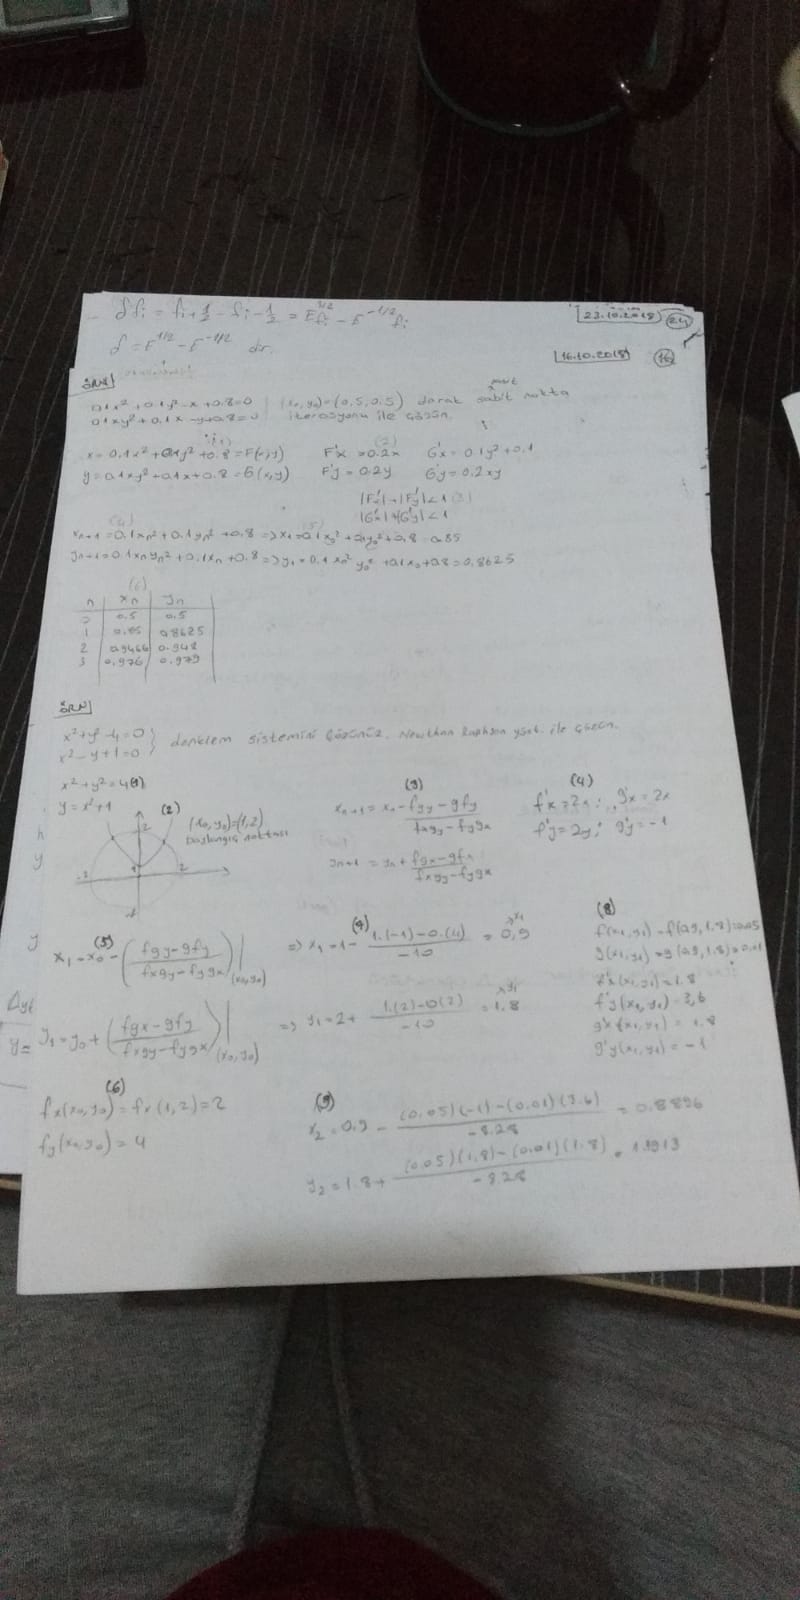 δfi = fi+1/2 - fi-1/2 = E^1/2 fi - E^-1/2 fi
23.10.2018 24
δ = E^1/2 - E^-1/2 dir.
16.10.2018 16
ÖRN
0.1x² + 0.1y² - x + 0.8 = 0 (x0, y0) = (0.5, 0.5) sabit nokta
0.1xy² + 0.1x - y + 0.8 = 0 iterasyonu ile çözün.
(1) (2)
x = 0.1x² + 0.1y² + 0.8 = F(x,y) F'x = 0.2x G'x = 0.1y² + 0.1
y = 0.1xy² + 0.1x + 0.8 = G(x,y) F'y = 0.2y G'y = 0.2xy
|F'x| + |F'y| < 1 (3)
|G'x| + |G'y| < 1
(4) (5)
xn+1 = 0.1xn² + 0.1yn² + 0.8 => x1 = 0.1x0² + 0.1y0² + 0.8 = 0.85
yn+1 = 0.1xnyn² + 0.1xn + 0.8 => y1 = 0.1 y0² + 0.1x0 + 0.8 = 0.8625
(6)
n xn yn
0 0.5 0.5
1 0.85 0.8625
2 0.9466 0.948
3 0.976 0.979
ÖRN
x² + y² - 4 = 0
x² - y + 1 = 0 } denklem sistemini çözünüz. Newthon Raphson yönt. ile çözün.
x² + y² = 4 (1)
y = x² + 1
(2) (x0, y0) = (1,2)
başlangıç noktası
2
1
-2 2
(3)
xn+1 = xn - fgy - gfy / fxgy - fygx
yn+1 = yn + fgx - gfx / fxgy - fygx
(4)
f'x = 2x ; g'x = 2x
f'y = 2y ; g'y = -1
(5)
x1 = x0 - (fgy - gfy / fxgy - fygx) | (x0, y0)
y1 = y0 + (fgx - gfy / fxgy - fygx) | (x0, y0)
=> x1 = 1 - 1.(-1) - 0.(4) / -10 = 0,9
=> y1 = 2 + 1.(2) - 0(2) / -10 = 1.8
(8)
f(x1, y1) = f(0.9, 1.8) = 0.05
g(x1, y1) = g(0.9, 1.8) = 0.01
f'x(x1, y1) = 1.8
f'y(x1, y1) = 3,6
g'x(x1, y1) = 1.8
g'y(x1, y1) = -1
(6)
fx(x0, y0) = fx(1,2) = 2
fy(x0, y0) = 4
(9)
x2 = 0,9 - (0.05)(-1) - (0.01)(3.6) / -8.28 = 0.8896
y2 = 1.8 + (0.05)(1.8) - (0.01)(1.8) / -8.28